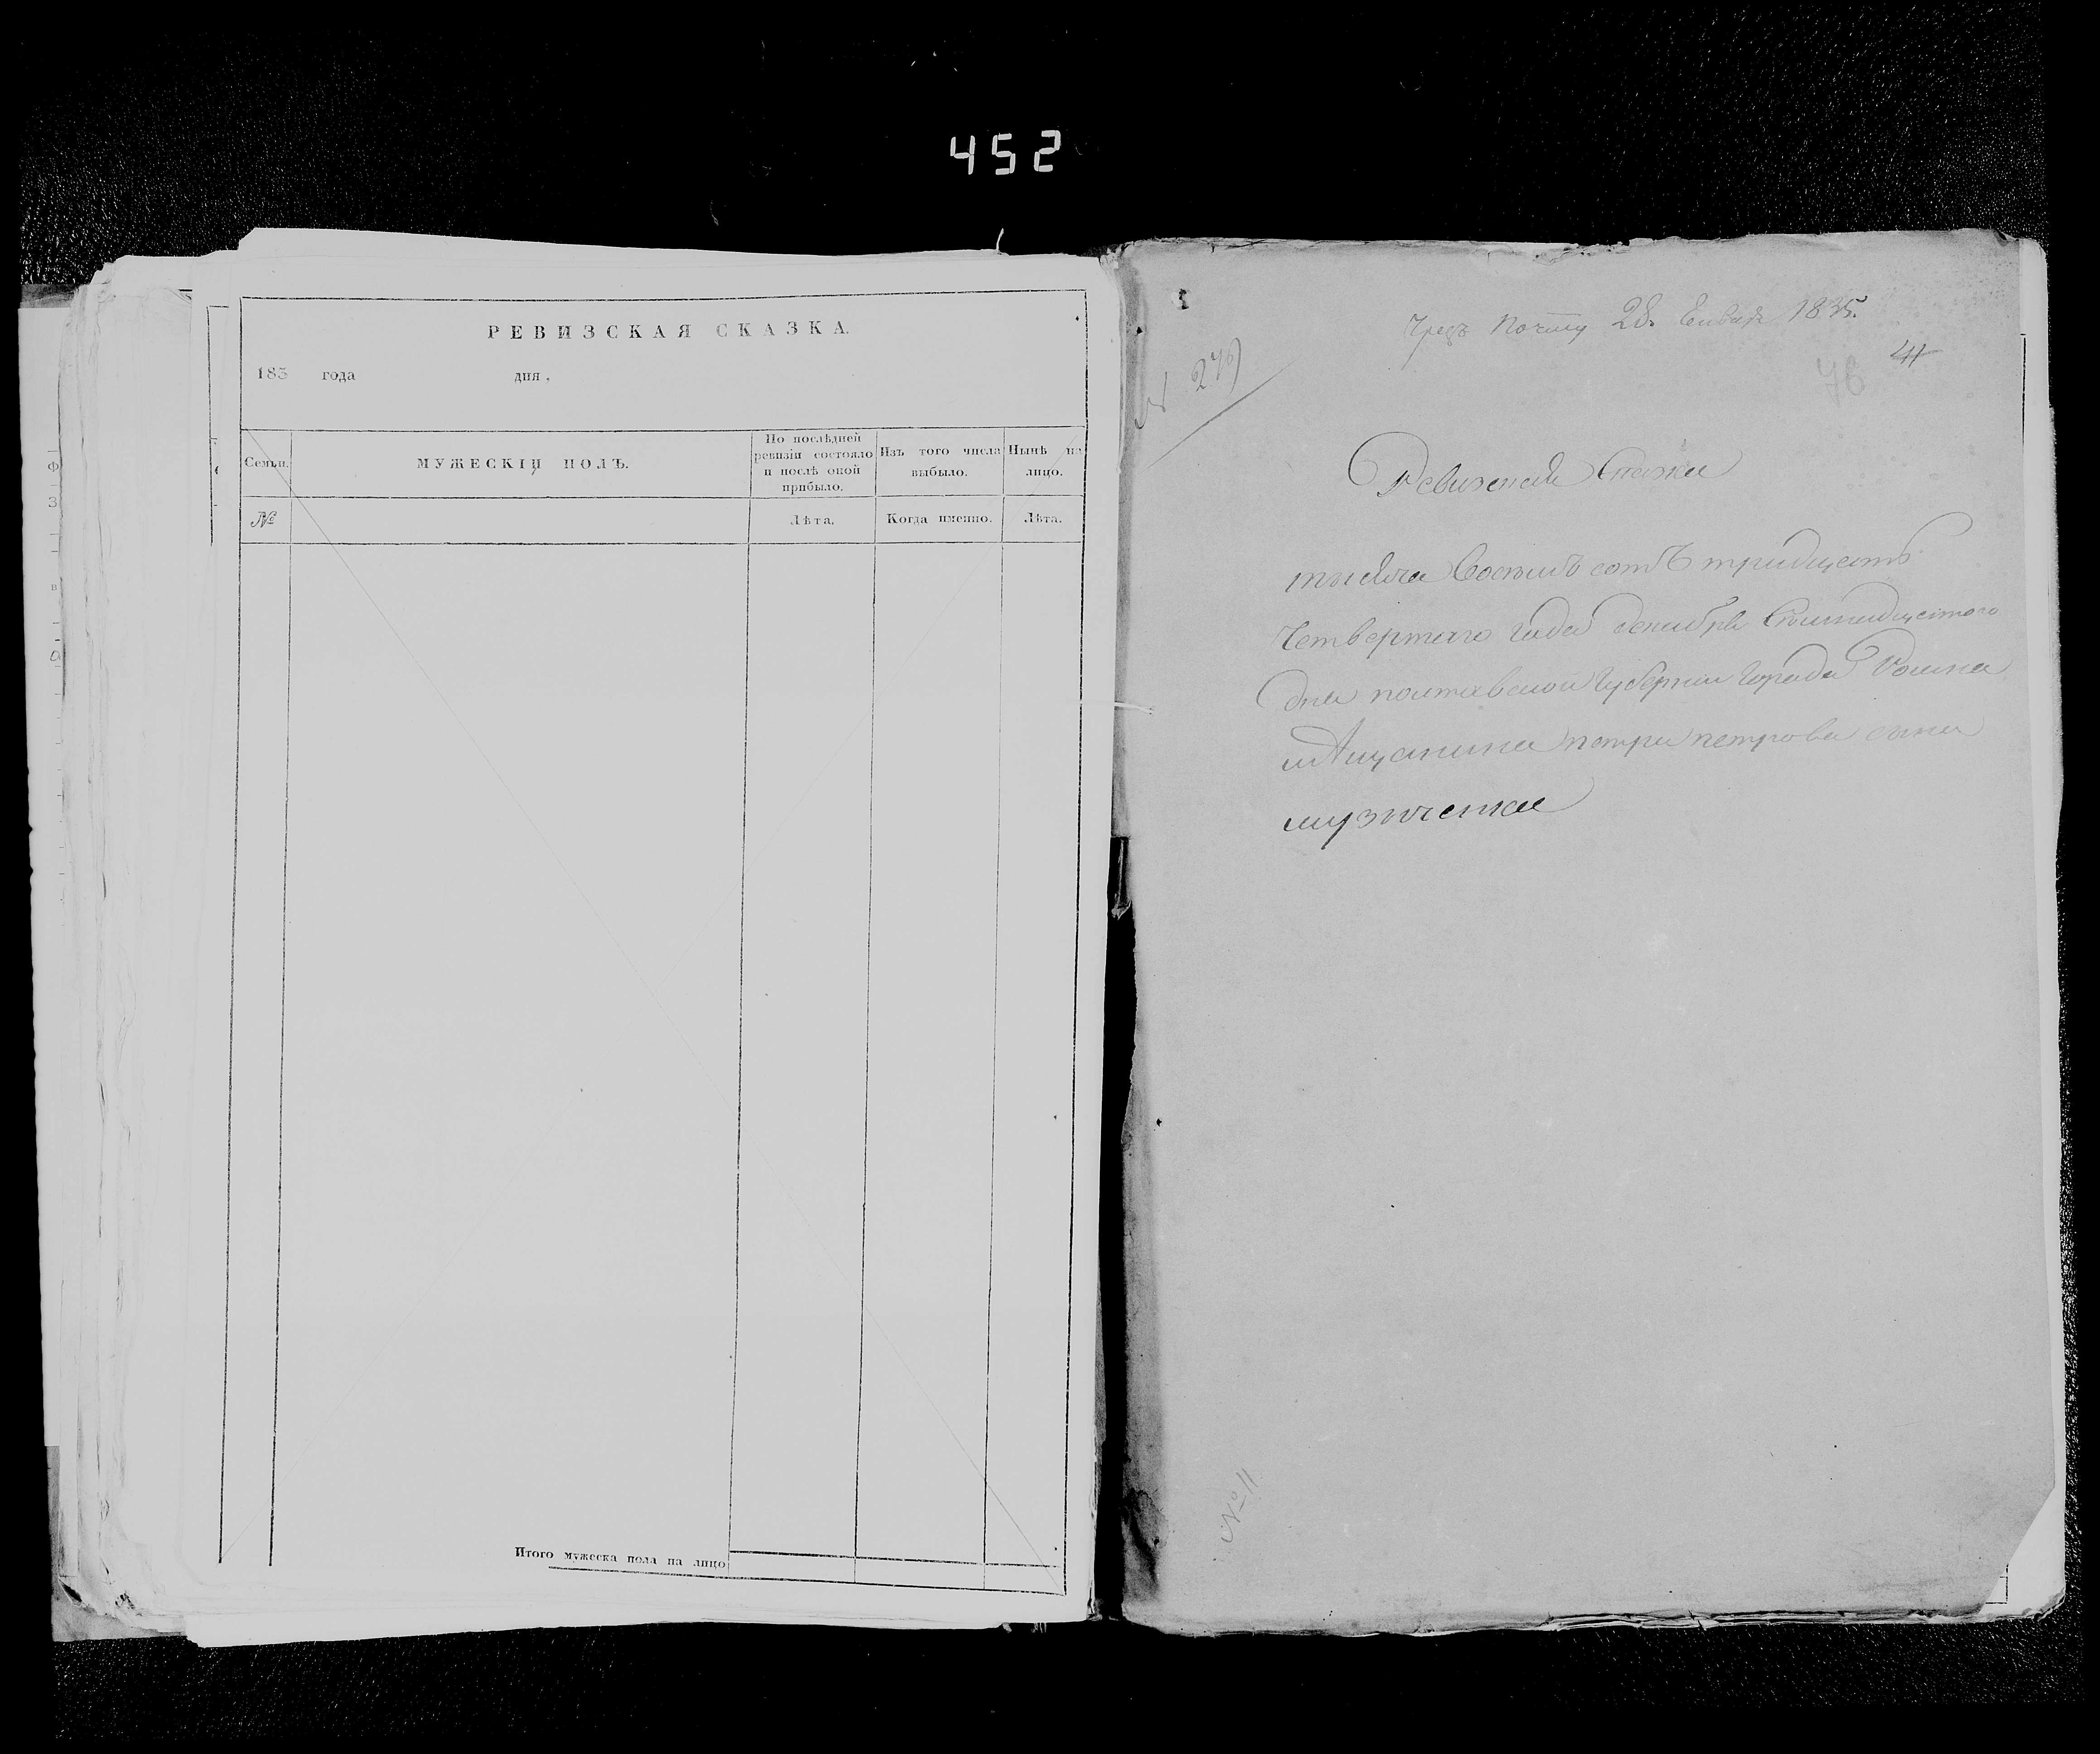 452
РЕВИЗСКАЯ СКАЗКА.
183 года дня.
Семьи.
МУЖЕСКІЙ ПОЛЪ.
По послѣдней ревизіи состояло и послѣ оной прибыло.
Изъ того числа выбыло.
Нынѣ на лицо.
№
Лѣта.
Когда именно.
Лѣта.
Итого мужеска пола на лицо
Чрезъ почту 28. Генваря 1835.
41
76
276
Ревизская Скаска
тысяча Восемъ сотъ тридцать
Четвертаго года декабря
дня полтавской губерніи города Ромна
мѣщанина петра петрова сына
музиченка
№ 11